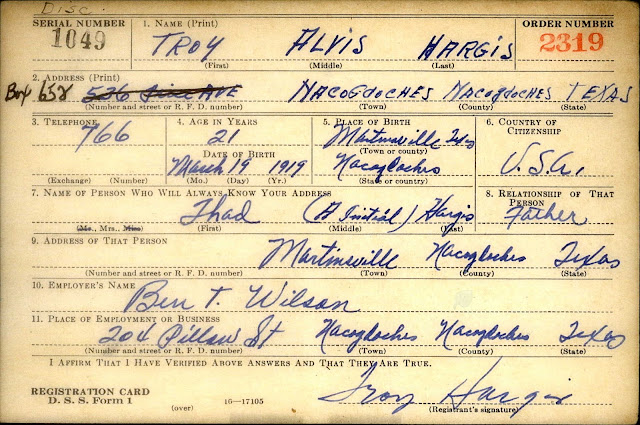 Disc.
SERIAL NUMBER 1. NAME (Print) ORDER NUMBER
1049 TROY ALVIS HARGIS 2319
(First) (Middle) (Last)
2. ADDRESS (Print)
Box 652 536 AVE NACOGDOCHES NACOGDOCHES TEXAS
(Number and street or R. F. D. number) (Town) (County) (State)
3. TELEPHONE 4. AGE IN YEARS 5. PLACE OF BIRTH 6. COUNTRY OF CITIZENSHIP
766 21 Martinsville Tex
(Town or county)
DATE OF BIRTH
March 19 1919 Nacogdoches U.S.A.
(Exchange) (Number) (Mo.) (Day) (Yr.) (State or country)
7. NAME OF PERSON WHO WILL ALWAYS KNOW YOUR ADDRESS 8. RELATIONSHIP OF THAT PERSON
Thad (A Initial) Hargis Father
(Mr., Mrs., Miss) (First) (Middle) (Last)
9. ADDRESS OF THAT PERSON
Martinsville Nacogdoches Texas
(Number and street or R. F. D. number) (Town) (County) (State)
10. EMPLOYER'S NAME
Ben T. Wilson
11. PLACE OF EMPLOYMENT OR BUSINESS
204 Pillow St Nacogdoches Nacogdoches Texas
(Number and street or R. F. D. number) (Town) (County) (State)
I AFFIRM THAT I HAVE VERIFIED ABOVE ANSWERS AND THAT THEY ARE TRUE.
REGISTRATION CARD
D. S. S. Form 1 (over) 16—17105 Troy Hargis
(Registrant's signature)